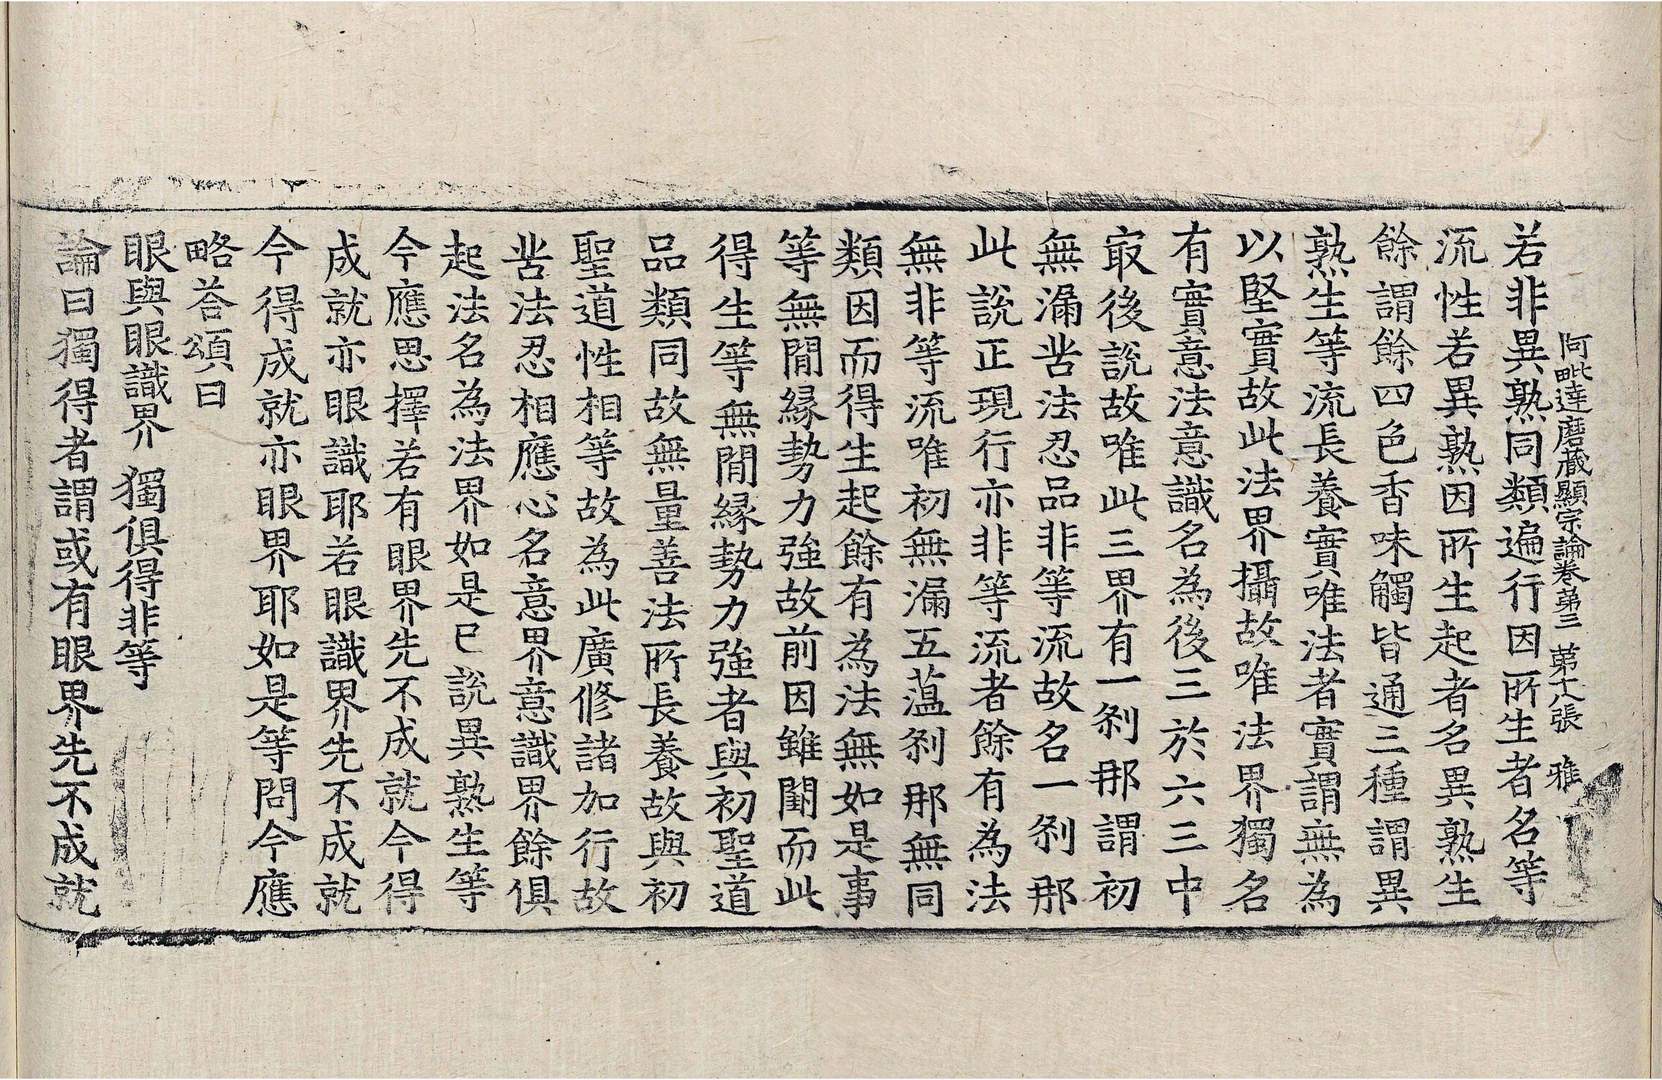 阿毗達磨藏顯宗論卷第三 第十八張 雅
若非異熟同類遍行因所生者名等
流性若異熟因所生起者名異熟生
餘謂餘四色香味觸皆通三種謂異
熟生等流長養實唯法者實謂無為
以堅實故此法界攝故唯法界獨名
有實意法意識名為後三於六三中
㝡後說故唯此三界有一剎那謂初
無漏苦法忍品非等流故名一剎那
此說正現行亦非等流者餘有為法
無非等流唯初無漏五薀剎那無同
類因而得生起餘有為法無如是事
等無間緣勢力強故前因雖闕而此
得生等無間緣勢力強者與初聖道
品類同故無量善法所長養故與初
聖道性相等故為此廣修諸加行故
苦法忍相應心名意界意識界餘俱
起法名為法界如是已說異熟生等
今應思擇若有眼界先不成就今得
成就亦眼識耶若眼識界先不成就
今得成就亦眼界耶如是等問今應
略荅頌曰
眼與眼識界 獨俱得非等
論曰獨得者謂或有眼界先不成就